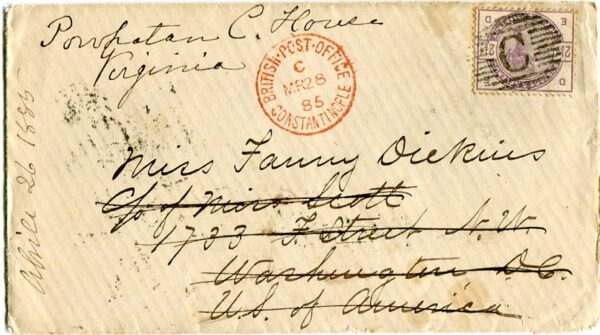 Powhatan C. House
Virginia
BRITISH·POST·OFFICE
C
MR 28
85
CONSTANTINOPLE
C
2½
D
E
2½
D
E
Miss Fanny Dickins
c/o of Miss Scott
1733 F. Street N.W.
Washington D.C.
U.S. of America
26 1885